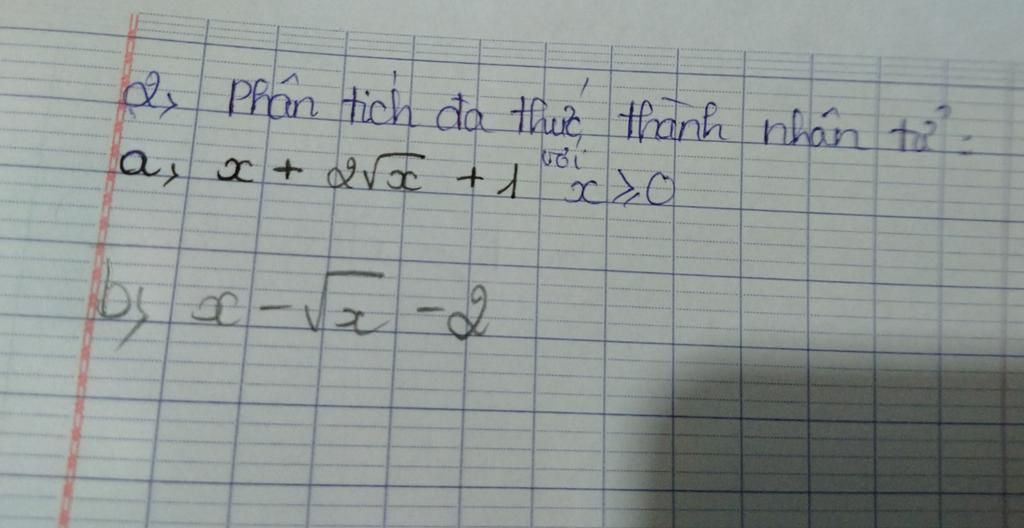 2, Phân tích đa thức thành nhân tử:
a, x + 2√x + 1 với x ⩾ 0
b, x - √x - 2